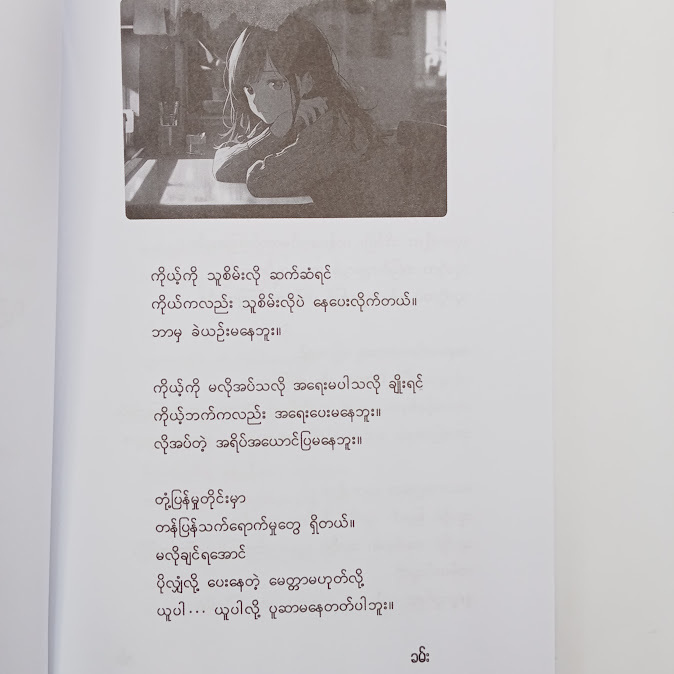 ကိုယ့်ကို သူစိမ်းလို ဆက်ဆံရင်
ကိုယ်ကလည်း သူစိမ်းလိုပဲ နေပေးလိုက်တယ်။
ဘာမှ ခဲယဉ်းမနေဘူး။
ကိုယ့်ကို မလိုအပ်သလို အရေးမပါသလို ချိုးရင်
ကိုယ့်ဘက်ကလည်း အရေးပေးမနေဘူး။
လိုအပ်တဲ့ အရိပ်အယောင်ပြမနေဘူး။
တုံ့ပြန်မှုတိုင်းမှာ
တန်ပြန်သက်ရောက်မှုတွေ ရှိတယ်။
မလိုချင်ရအောင်
ပိုလျှံလို့ ပေးနေတဲ့ မေတ္တာမဟုတ်လို့
ယူပါ... ယူပါလို့ ပူဆာမနေတတ်ပါဘူး။
ခမ်း